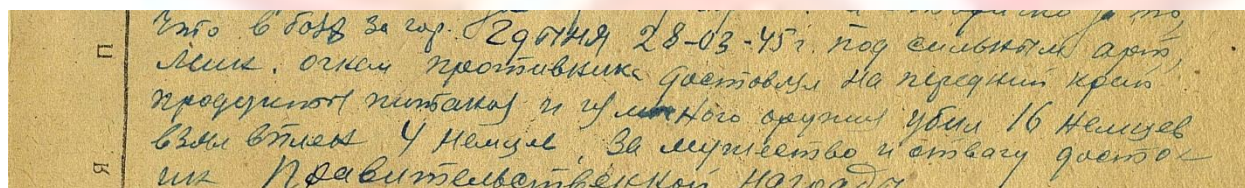 что в боях за гор. Гдыня 28-03-45 г. под сильным арт,
мин. огнем противника доставлял на передний край
продукты питания и из личного оружия убил 16 немцев
взял в плен 4 немца, за мужество и отвагу достоин
Правительственной награды
П
Я